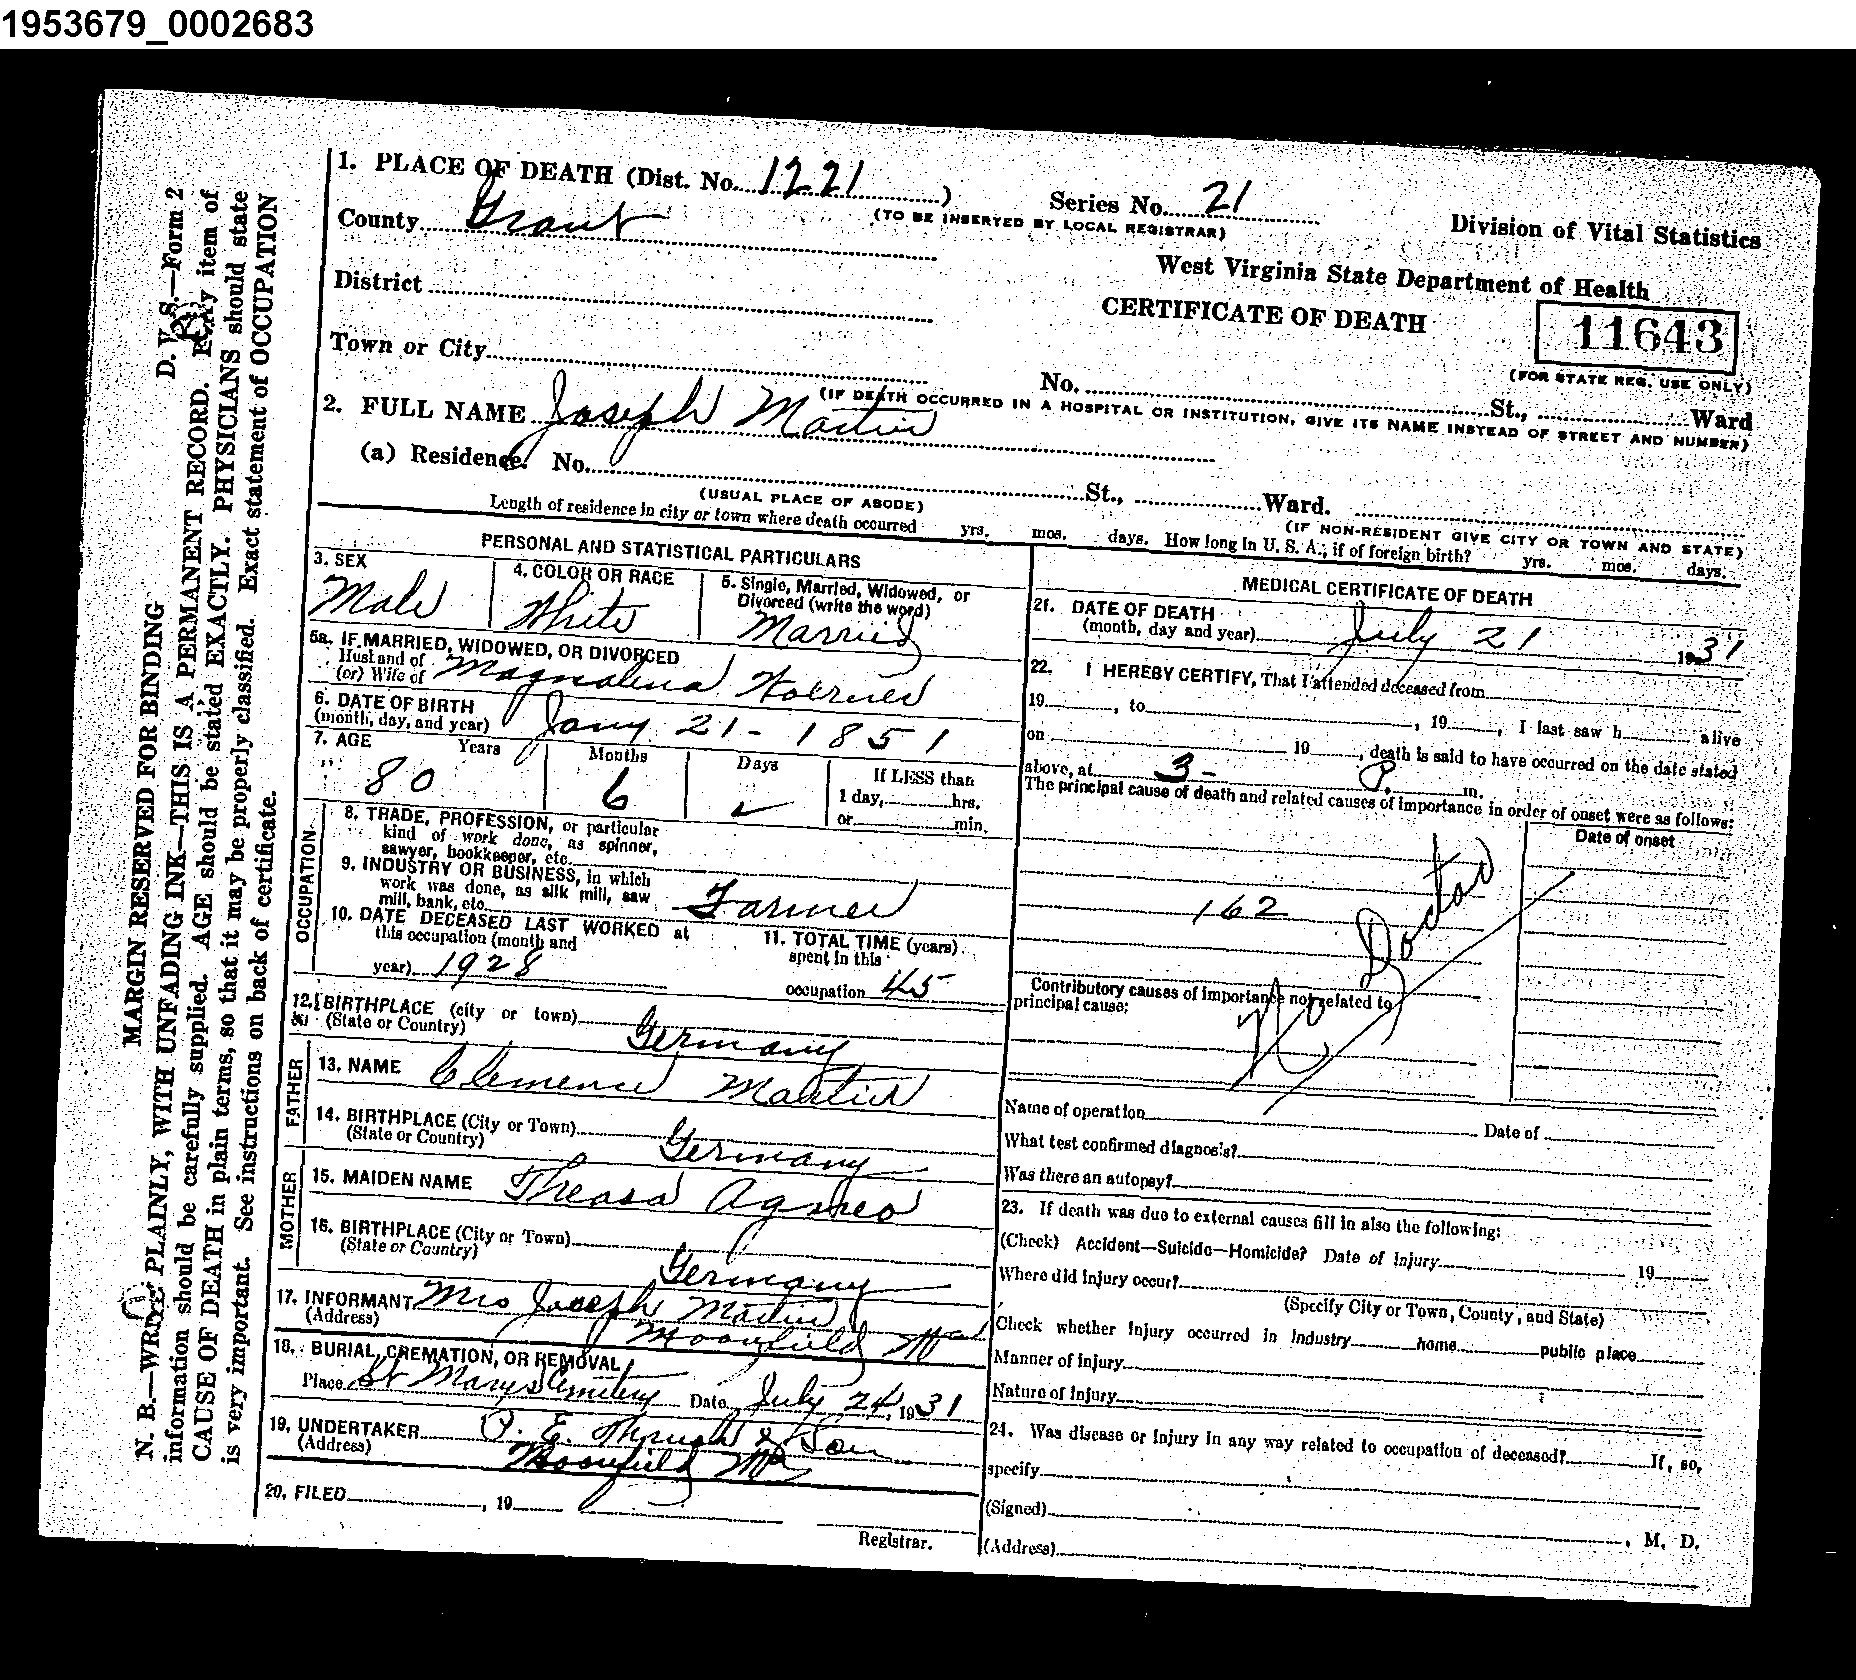 1953679_0002683
MARGIN RESERVED FOR BINDING D. V. S.—Form 2
N. B.—WRITE PLAINLY, WITH UNFADING INK—THIS IS A PERMANENT RECORD. Every item of
information should be carefully supplied. AGE should be stated EXACTLY. PHYSICIANS should state
CAUSE OF DEATH in plain terms, so that it may be properly classified. Exact statement of OCCUPATION
is very important. See instructions on back of certificate.
1. PLACE OF DEATH (Dist. No. 1221)
Series No. 21
(TO BE INSERTED BY LOCAL REGISTRAR)
County Grant
Division of Vital Statistics
West Virginia State Department of Health
District
CERTIFICATE OF DEATH
11643
(FOR STATE REG. USE ONLY)
Town or City
No. St., Ward
(IF DEATH OCCURRED IN A HOSPITAL OR INSTITUTION, GIVE ITS NAME INSTEAD OF STREET AND NUMBER)
2. FULL NAME Joseph Martin
(a) Residence. No. St., Ward.
(USUAL PLACE OF ABODE)
(IF NON-RESIDENT GIVE CITY OR TOWN AND STATE)
Length of residence in city or town where death occurred yrs. mos. days. How long in U. S. A., if of foreign birth? yrs. mos. days.
PERSONAL AND STATISTICAL PARTICULARS
3. SEX
Male
4. COLOR OR RACE
White
5. Single, Married, Widowed, or
Divorced (write the word)
Married
5a. IF MARRIED, WIDOWED, OR DIVORCED
Husband of
(or) Wife of Magnalina
6. DATE OF BIRTH
(month, day, and year) Jany 21 - 1851
7. AGE Years Months Days If LESS than
80 6 1 day, hrs.
or min.
OCCUPATION
8. TRADE, PROFESSION, or particular
kind of work done, as spinner,
sawyer, bookkeeper, etc.
9. INDUSTRY OR BUSINESS, in which
work was done, as silk mill, saw
mill, bank, etc. Farmer
10. DATE DECEASED LAST WORKED at
this occupation (month and
year) 1928
11. TOTAL TIME (years)
spent in this
occupation 45
12. BIRTHPLACE (city or town)
(State or Country) Germany
FATHER
13. NAME Clemence Martin
14. BIRTHPLACE (City or Town)
(State or Country) Germany
MOTHER
15. MAIDEN NAME Theasa
16. BIRTHPLACE (City or Town)
(State or Country) Germany
17. INFORMANT Mrs Joseph Martin
(Address)
18. BURIAL, CREMATION, OR REMOVAL
Place St Marys Cemetery Date July 24, 1931
19. UNDERTAKER & Son
(Address)
20. FILED , 19
Registrar.
MEDICAL CERTIFICATE OF DEATH
21. DATE OF DEATH
(month, day and year) July 21 1931
22. I HEREBY CERTIFY, That I attended deceased from
19 , to , 19 , I last saw h alive
on 19 , death is said to have occurred on the date stated
above, at 3- P. m.
The principal cause of death and related causes of importance in order of onset were as follows:
Date of onset
162
No Doctor
Contributory causes of importance not related to
principal cause:
Name of operation Date of
What test confirmed diagnosis?
Was there an autopsy?
23. If death was due to external causes fill in also the following:
(Check) Accident—Suicide—Homicide? Date of injury 19
Where did injury occur?
(Specify City or Town, County, and State)
Check whether injury occurred in industry home public place
Manner of injury
Nature of injury
24. Was disease or injury in any way related to occupation of deceased? If, so,
specify
(Signed) , M. D.
(Address)